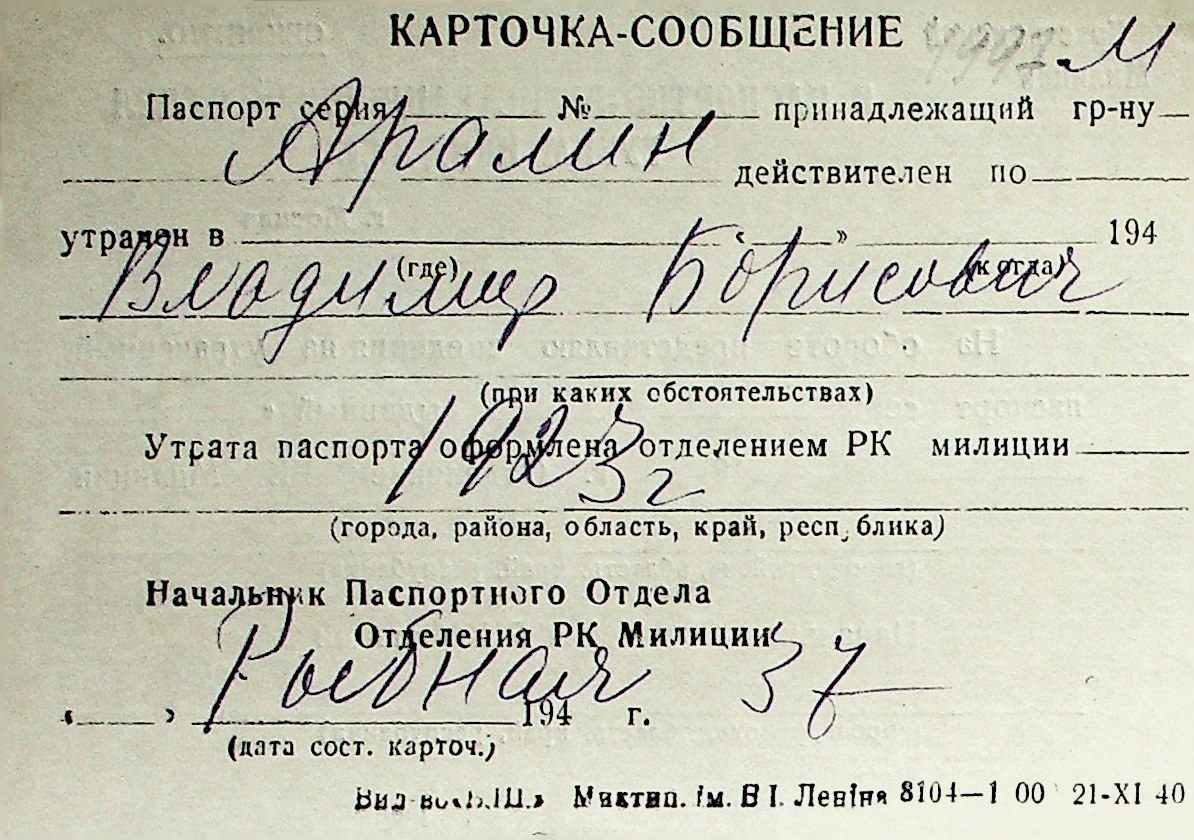 КАРТОЧКА-СООБЩЕНИЕ
М
Паспорт серия № принадлежащий гр-ну
Аралин
действителен по
утрачен в « » 194
(где) (когда)
Владимир Борисович
(при каких обстоятельствах)
Утрата паспорта оформлена отделением РК милиции
1923 г
(города, района, область, край, республика)
Начальник Паспортного Отдела
Отделения РК Милиции
Рыбная 37
« » 194 г.
(дата сост. карточ.)
Мистип. ім. В І. Леніна 8104—1 00 21-XI 40